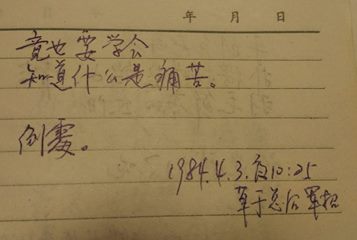 年 月 日
竟也要学会
知道什么是痛苦。
例要。
1984.4.3.夜10:25
草于总后军招